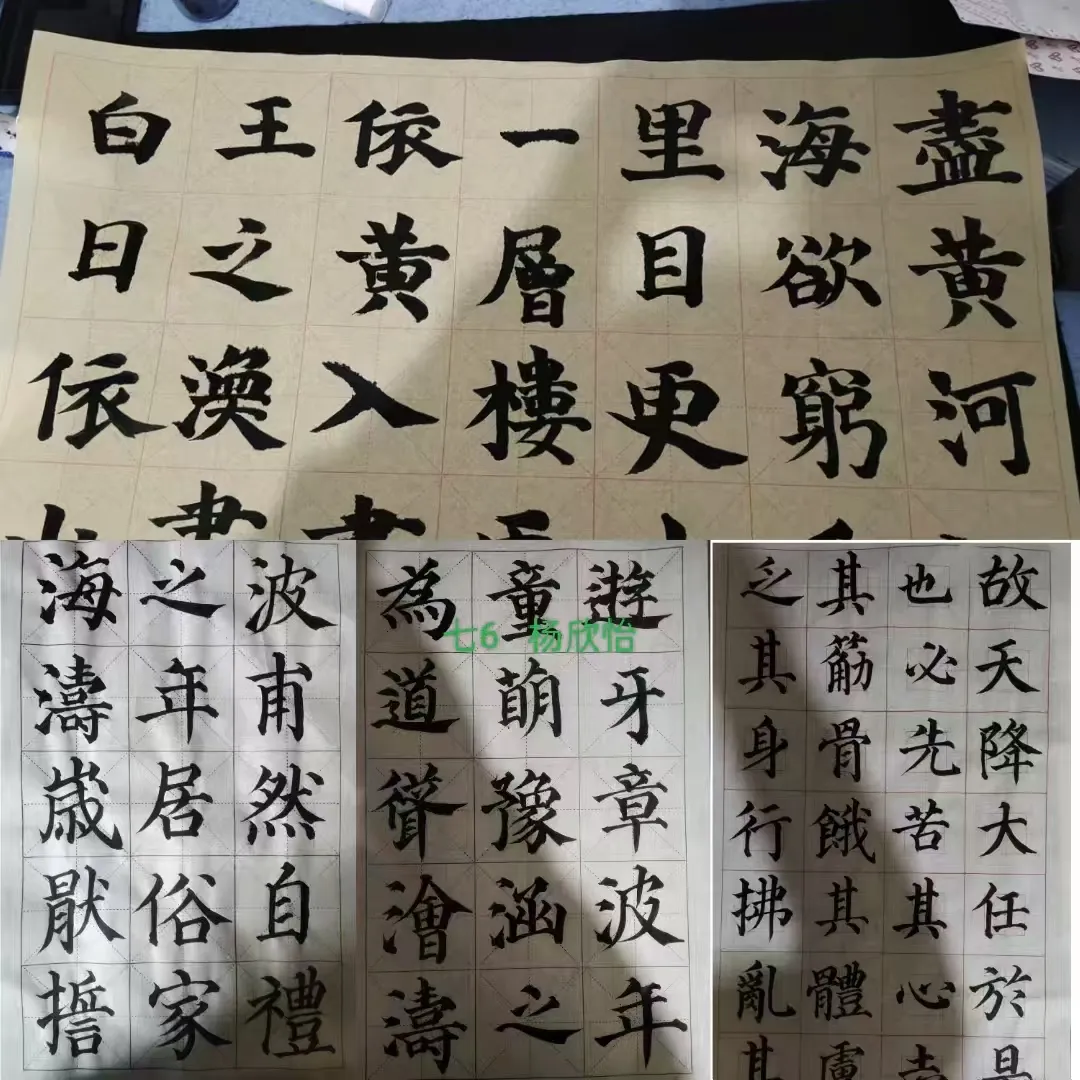 盡黄河
海欲窮
里目更
一層樓
依黄入
王之渙
白日依
波甫然自禮
之年居俗家
海濤嵗厭
遊牙章波年
童萌豫涵之
為道聳澮濤
七6 杨欣怡
故天降大任於是
也必先苦其心志
其筋骨餓其體膚
乏其身行拂亂其